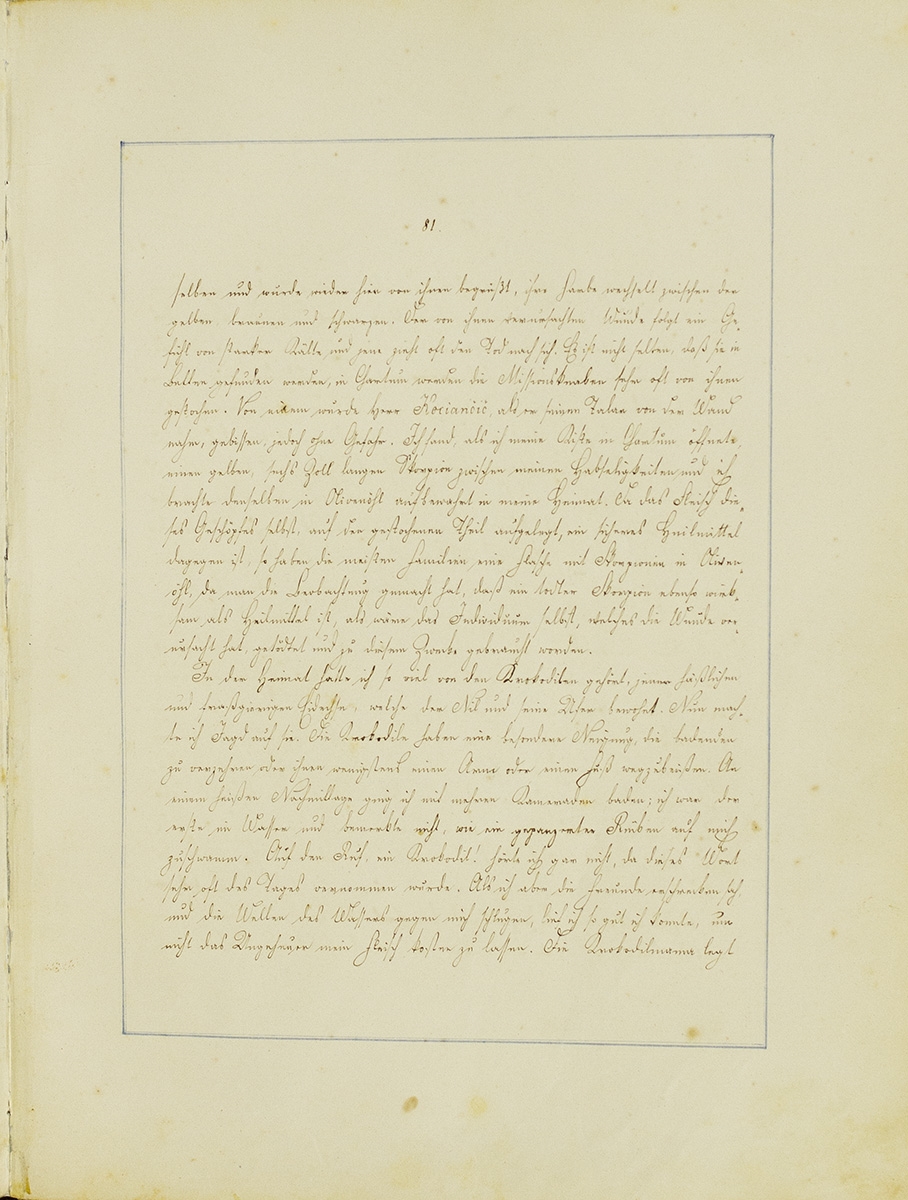 81.
selben und wurde wieder hier von ihnen begrüßt, ihre Farbe wechselt zwischen der
gelben, braunen und schwarzen. Der von ihnen verursachten Wunde folgt ein Ge-
fühl von starker Kälte und jene zieht oft den Tod nach sich. Es ist nicht selten, daß sie in
Betten gefunden werden, in Chartum werden die Missionsknaben sehr oft von ihnen
gestochen. Von einem wurde Herr Kociančič, als er seinen Talar von der Wand
nahm, gebissen, jedoch ohne Gefahr. Ich fand, als ich meine Kiste in Chartum öffnete
einen gelben, sechs Zoll langen Skorpion zwischen meinen Habseligkeiten und ich
brachte denselben in Olivenöhl aufbewahrt in meine Heimat. Da das Fleisch die-
ses Geschöpfes selbst, auf den gestochenen Theil aufgelegt, ein sicheres Heilmittel
dagegen ist, so haben die meisten Familien eine Flasche mit Skorpionen in Oliven-
öhl, da man die Beobachtung gemacht hat, daß ein todter Skorpion ebenso wirk-
sam als Heilmittel ist, als wäre das Individuum selbst, welches die Wunde ver-
ursacht hat, getödtet und zu diesem Zwecke gebraucht worden.
In der Heimat hatte ich so viel von den Krokodilen gehört, jener häßlichen
und fraßgierigen Eidechse, welche den Nil und seine Ufer bewohnt. Nun mach-
te ich Jagd auf sie. Die Krokodile haben eine besondere Neigung, die badenden
zu verzehren oder ihnen wenigstens einen Arm oder einen Fuß wegzubeißen. An
einem heißen Nachmittage ging ich mit mehren Kameraden baden; ich war der
erste im Wasser und bemerkte nicht, wie ein gepanzerter Rüben auf mich
zuschwamm. Auf den Ruf, ein Krokodil! hörte ich gar nicht, da dieses Wort
sehr oft des Tages vernommen wurde. Als ich aber die Freunde erschrecken sah
und die Wellen des Wassers gegen mich schlugen, lief ich so gut ich konnte, um
nicht das Ungeheuer mein Fleisch kosten zu lassen. Die Krokodilmama legt